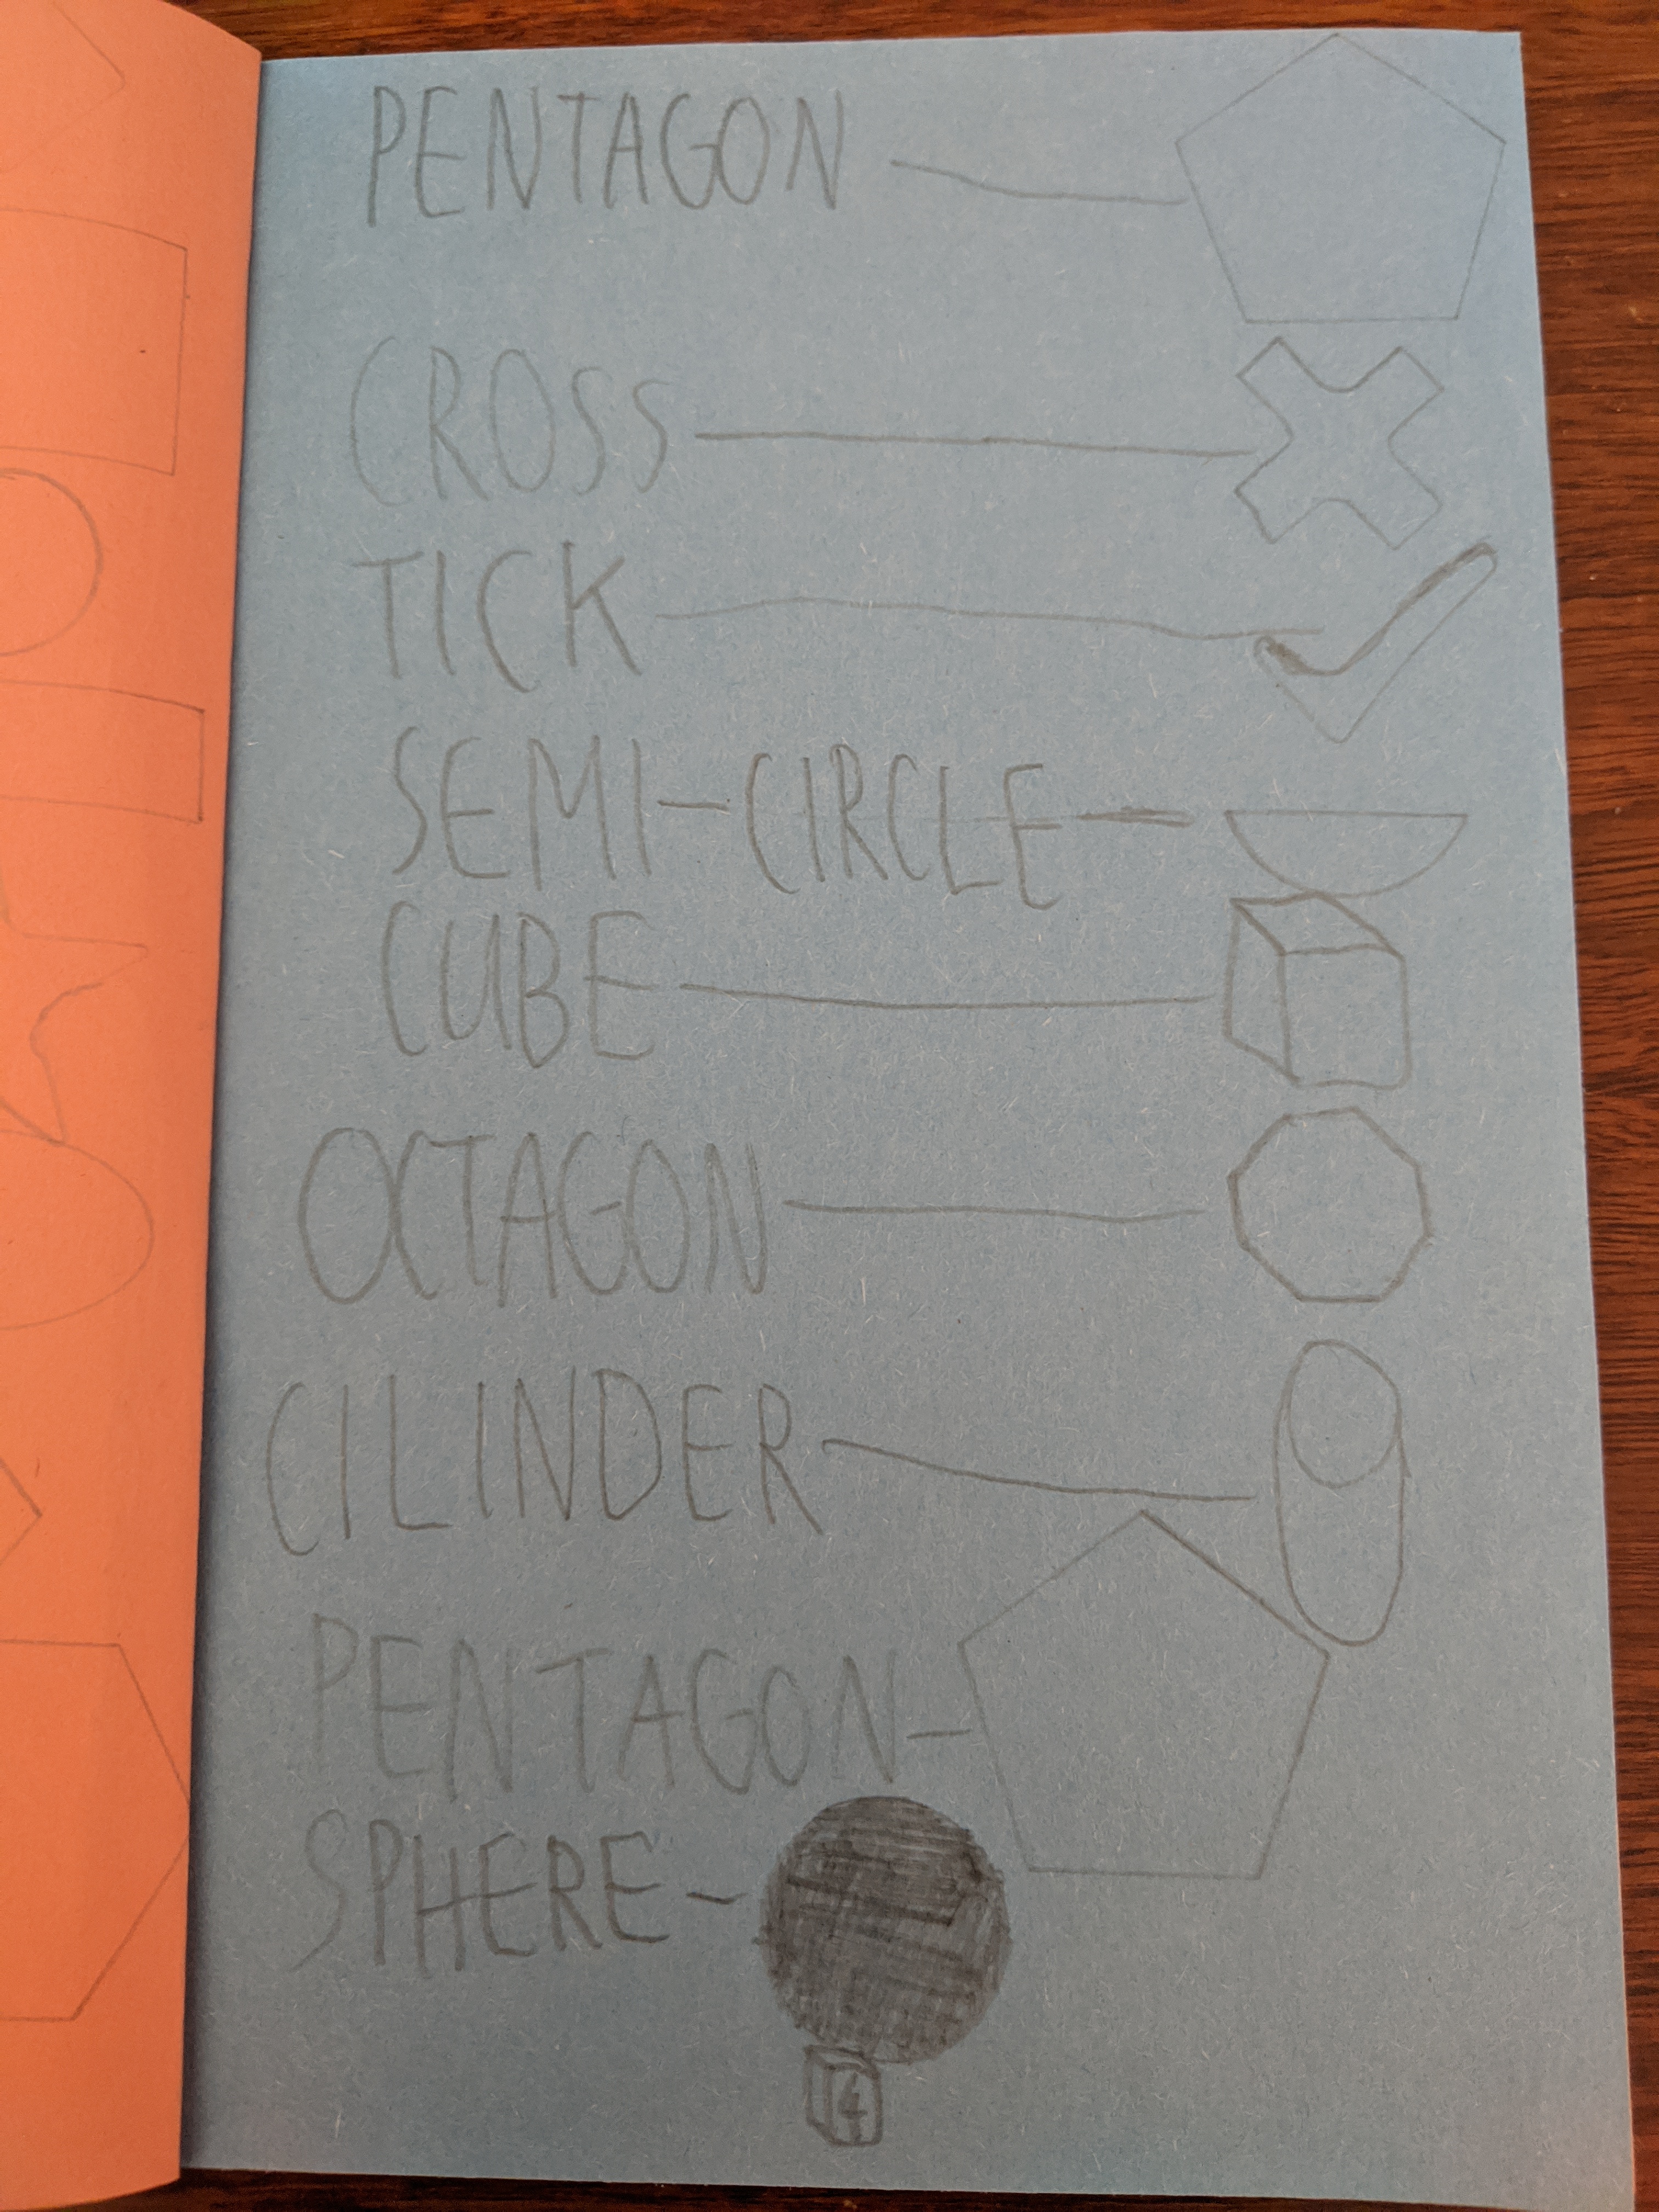 PENTAGON
CROSS
TICK
SEMI-CIRCLE
CUBE
OCTAGON
CILINDER
PENTAGON
SPHERE
4